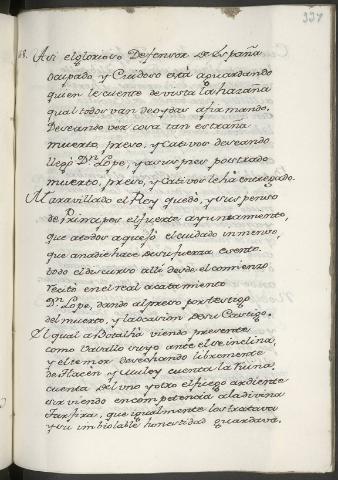 337
Asi el glorioso Defensor de España
ocupado, y Cuidoso está aguardando
quien le cuente de vista la hazaña
qual todos van de oydas afirmando.
Deseando ver cosa tan estraña
muerto, preso, y Cativos deseando
llegó Dn. Lope, y a sus pies postrado
muerto, preso, y Cativos le há entregado.
Maravillado el Rey quedó, y suspenso
de Principes el fuerte ayuntamiento,
que a todos aquejó el cuidado inmenso,
que a nadie hace de su fuerza esento.
todo el discurso alli desde el comienso
recitó en el real acatamiento
Dn. Lope, dando al preso por testigo
del muerto, y la ocasion de su Castigo.
El qual a Botalhá viendo presente
como Cavallo suyo ante el se inclina,
y el temor desechando libremente
de Hacén y Muley cuenta la ruina,
cuenta del uno y otro el fuego ardiente
sirviendo en competencia a la divina
Tarfira, que igualmente los tratava
y su imbiolable honestidad guardava.